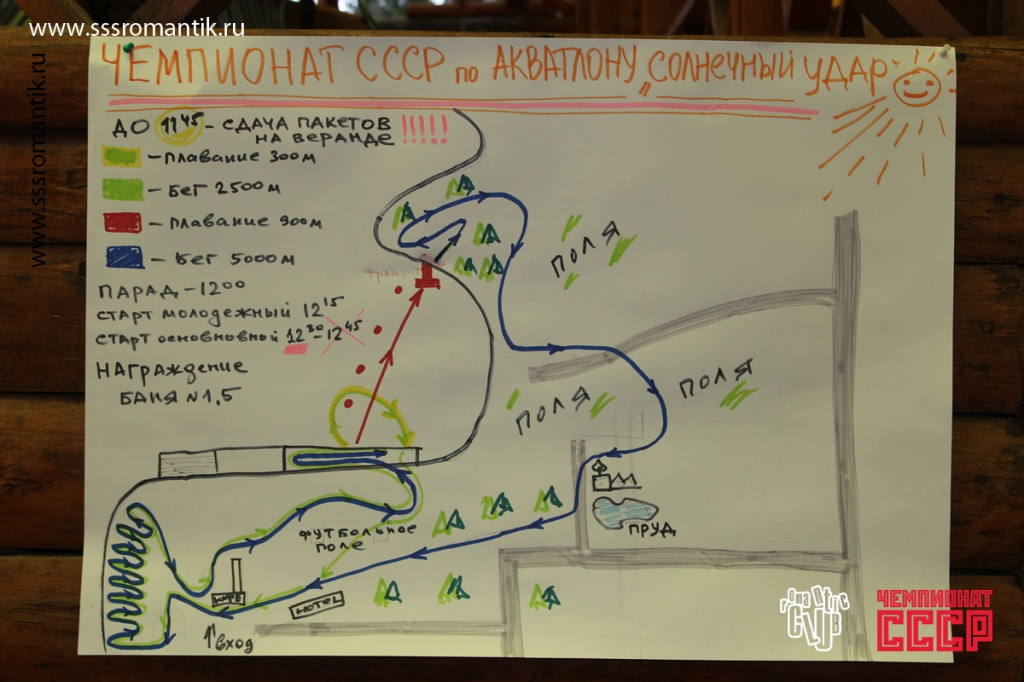 www.sssromantik.ru
www.sssromantik.ru
ЧЕМПИОНАТ СССР по АКВАТЛОНУ „СОЛНЕЧНЫЙ УДАР
ДО 11 45 - СДАЧА ПАКЕТОВ
НА ВЕРАНДЕ !!!!!
- ПЛАВАНИЕ 300м
- БЕГ 2500м
- ПЛАВАНИЕ 900м
- БЕГ 5000м
ПАРАД - 12 00
СТАРТ МОЛОДЕЖНЫЙ 12 15
СТАРТ ОСНОВНОВНОЙ 12 30 - 12 45
НАГРАЖДЕНИЕ
БАНЯ №1,5
ПОЛЯ
ПОЛЯ
ПОЛЯ
ПРУД
ФУТБОЛЬНОЕ
ПОЛЕ
КАФЕ
HOTEL
1й ВХОД
ЧЕМПИОНАТ
СССР